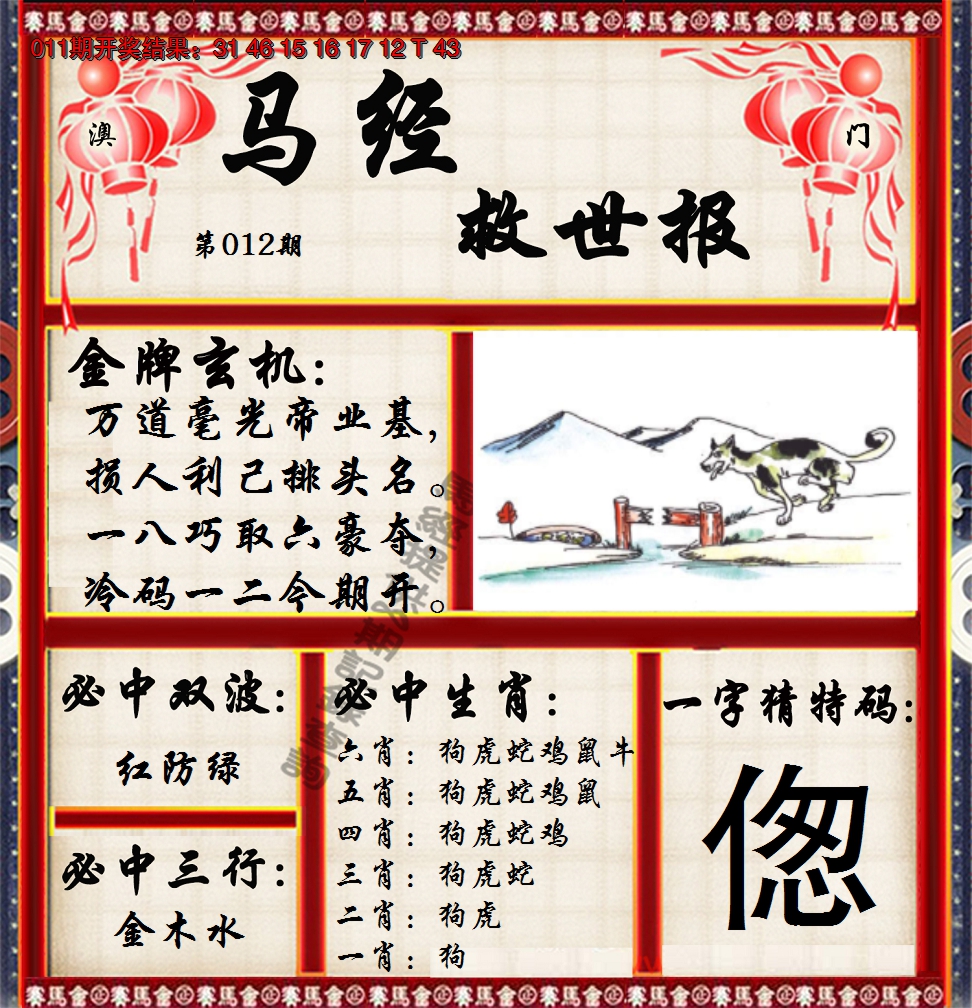 賽馬會㊣賽馬會㊣賽馬會㊣賽馬會㊣賽馬會㊣賽馬會㊣
011期开奖结果：31 46 15 16 17 12 T 43
澳
门
马经
救世报
第012期
金牌玄机：
万道毫光帝业基，
损人利己排头名。
一八巧取六豪夺，
冷码一二今期开。
必中双波：
红防绿
必中三行：
金木水
必中生肖：
六肖：狗虎蛇鸡鼠牛
五肖：狗虎蛇鸡鼠
四肖：狗虎蛇鸡
三肖：狗虎蛇
二肖：狗虎
一肖：狗
一字猜特码：
偬